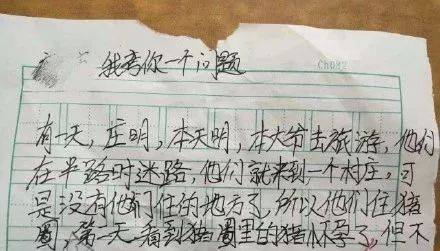 我考你一个问题
Ch082
有一天，庄明，本天明，本大爷去旅游，他们
在半路时迷路，他们就来到一个村庄，可
是没有他们住的地方了，所以他们住猪
圈，第一天看到猪圈里的猪都晕了，但不